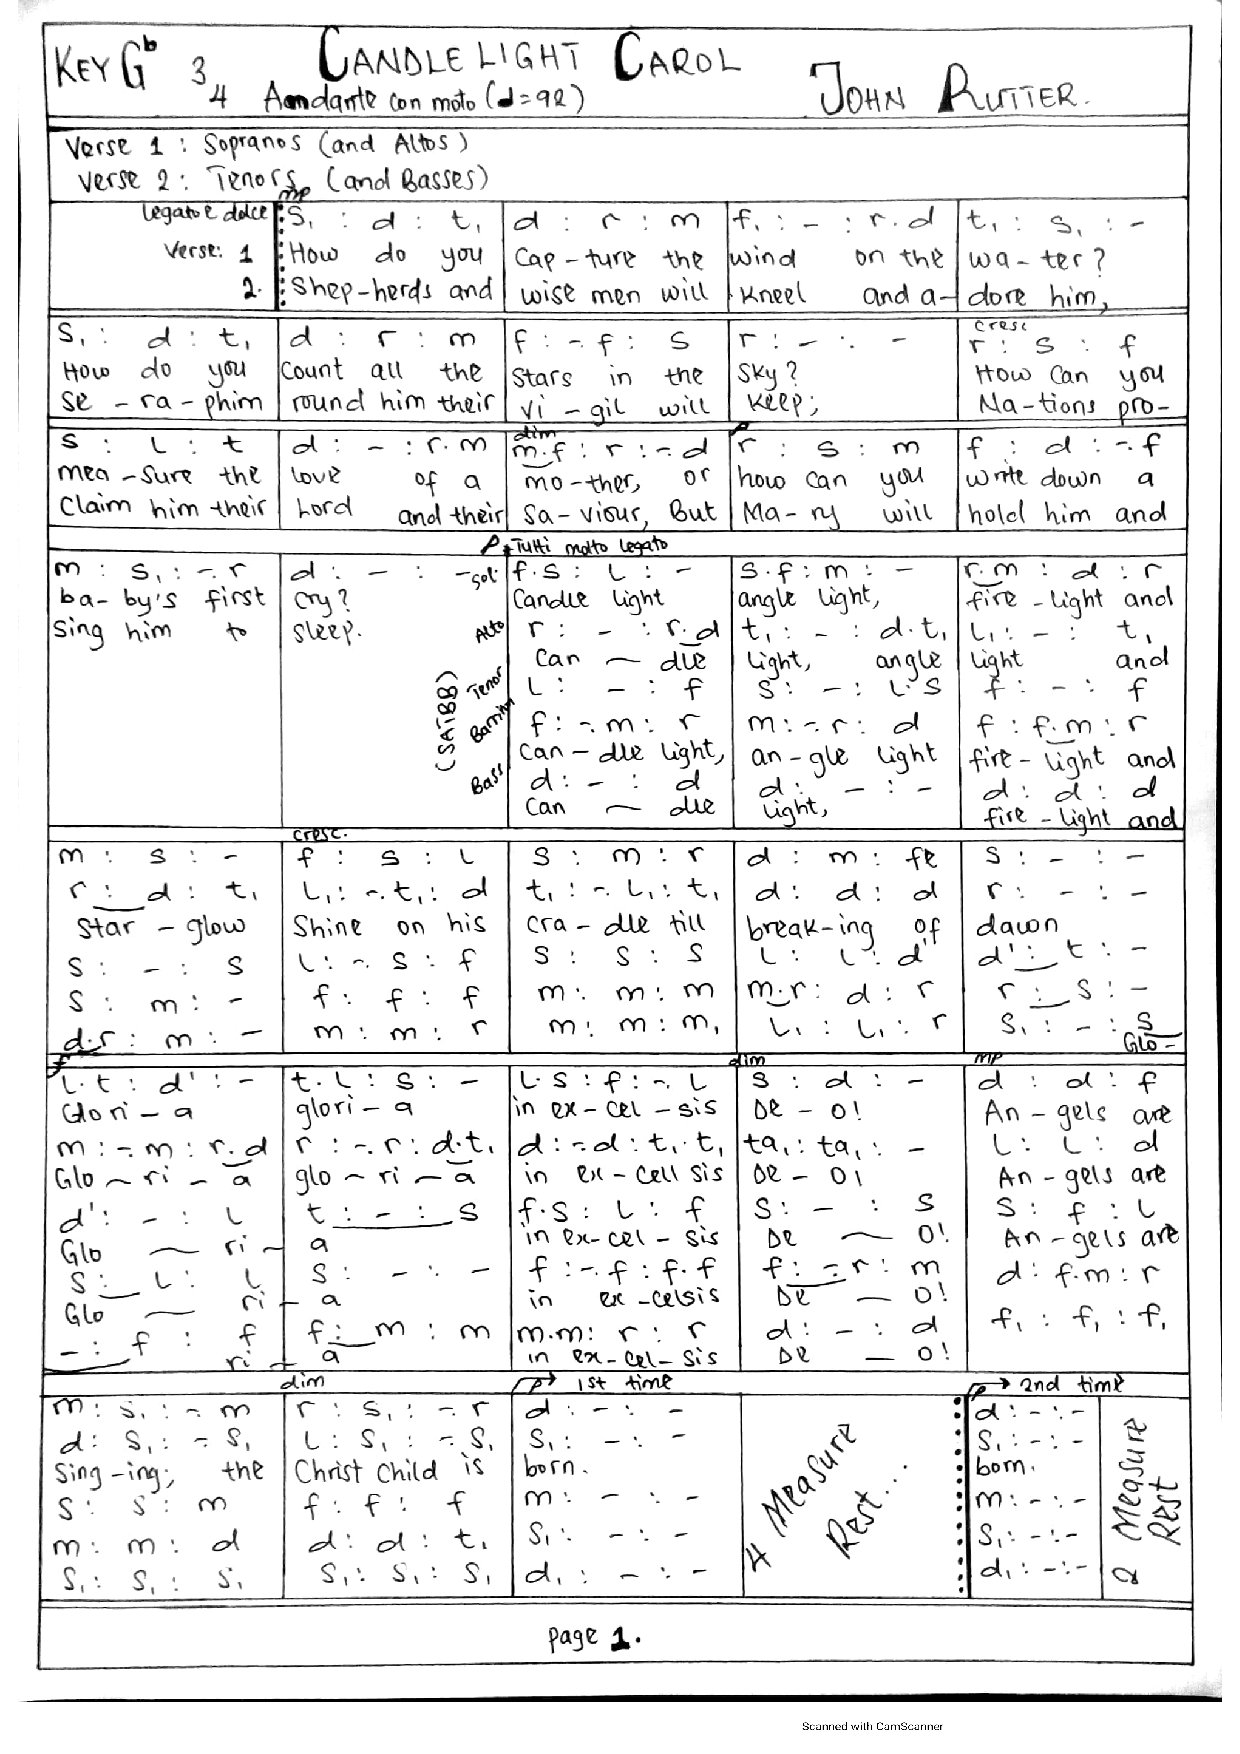 KEY G♭ 3/4 CANDLE LIGHT CAROL
Aandante con moto (♩=92) JOHN RUTTER.
Verse 1 : Sopranos (and Altos)
Verse 2 : Tenors (and Basses)
mp
legato e dolce S₁ : d : t₁ | d : r : m | f. : - : r.d | t₁ : s₁ : -
Verse: 1 How do you | Cap-ture the | wind on the | wa-ter?
2. Shep-herds and | wise men will | Kneel and a- | dore him,
cresc
S₁ : d : t₁ | d : r : m | f : -. f : s | r : - : - | r : s : f
How do you | Count all the | Stars in the | Sky? | How Can you
Se-ra-phim | round him their | Vi-gil will | Keep; | Na-tions pro-
dim p
S : l : t | d : - : r.m | m.f : r : -.d | r : s : m | f : d : -.f
mea-Sure the | love of a | mo-ther, or | how can you | write down a
Claim him their | Lord and their | Sa-viour, But | Ma-ry will | hold him and
P Tutti molto legato
m : s₁ : -. r | d : - : - | Sol: f.s : l : - | s.f : m : - | r.m : d : r
ba-by's first | Cry? | Candle light | angle light, | fire-light and
Sing him to | Sleep. | Alto r : - : r.d | t₁ : - : d.t₁ | l₁ : - : t₁
Can ~ dle | light, angle | light and
(SATBB) Tenor l : - : f | s : - : l.s | f : - : f
f : -.m : r | m : -.r : d | f : f.m : r
Can-dle light, | an-gle light | fire-light and
Bass d : - : d | d : - : - | d : d : d
Can ~ dle | light, | fire-light and
cresc.
m : s : - | f : s : l | s : m : r | d : m : fe | s : - : -
r : d : t₁ | l₁ : -.t₁ : d | t₁ : -.l₁ : t₁ | d : d : d | r : - : -
Star-glow | Shine on his | cra-dle till | break-ing of | dawn
s : - : s | l : -. s : f | s : s : s | l : l : d' | d' : t : -
s : m : - | f : f : f | m : m : m | m.r : d : r | r : s : -
d.r : m : - | m : m : r | m : m : m₁ | l₁ : l₁ : r | s₁ : - : s
Glo-
f dim mp
l.t : d' : - | t.l : s : - | l.s : f : -. l | s : d : - | d : d : f
Glori-a | glori-a | in ex-cel-sis | De-o! | An-gels are
m : -.m : r.d | r : -.r : d.t₁ | d : -.d : t₁.t₁ | ta₁ : ta₁ : - | l : l : d
Glo ~ ri-a | glo ~ ri-a | in ex-cell sis | De-o! | An-gels are
d' : - : l | t : - : s | f.s : l : f | s : - : s | s : f : l
Glo ~ ri- | a | in ex-cel-sis | De ~ o! | An-gels are
s : l : l | s : - : - | f : -. f : f.f | f : - r : m | d : f.m : r
Glo ~ ri- | a | in ex-celsis | De - o!
- : f : f | f : m : m | m.m : r : r | d : - : d | f₁ : f₁ : f₁
ri- | a | in ex-cel-sis | De - o!
dim p → 1st time p → 2nd time
m : s₁ : -. m | r : s₁ : -. r | d : - : - | d : - : -
d : s₁ : -. s₁ | l : s₁ : -. s₁ | s₁ : - : - | s₁ : - : -
Sing-ing; the | Christ Child is | born. | born.
s : s : m | f : f : f | m : - : - | m : - : -
m : m : d | d : d : t₁ | s₁ : - : - | s₁ : - : -
s₁ : s₁ : s₁ | s₁ : s₁ : s₁ | d₁ : - : - | d₁ : - : -
4 Measure Rest...
2 Measure Rest
page 1.
Scanned with CamScanner